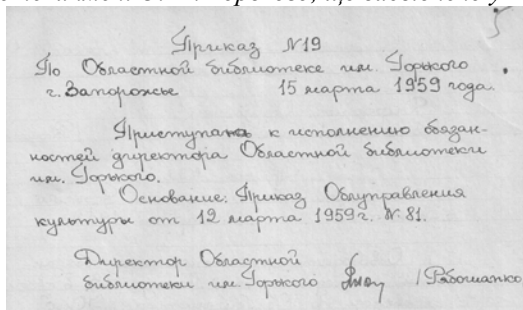 Приказ №19
По Областной библиотеке им. Горького
г. Запорожье 15 марта 1959 года.
Приступаю к исполнению обязан-
ностей директора Областной библиотеки
им. Горького.
Основание: Приказ Облуправления
культуры от 12 марта 1959 г. № 81.
Директор Областной
библиотеки им. Горького /Рябошапко